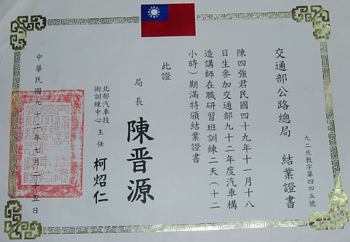 交通部公路總局 結業證書
九二北教字第四四五號
陳四強君民國四十九年十一月十八
日生參加交通部九十二年度汽車構
造講師在職研習班訓練二天（十二
小時）期滿特頒結業證書
此證
局長 陳晋源
北部汽車技
術訓練中心 主任 柯炤仁
中華民國九十二年七月二十五日